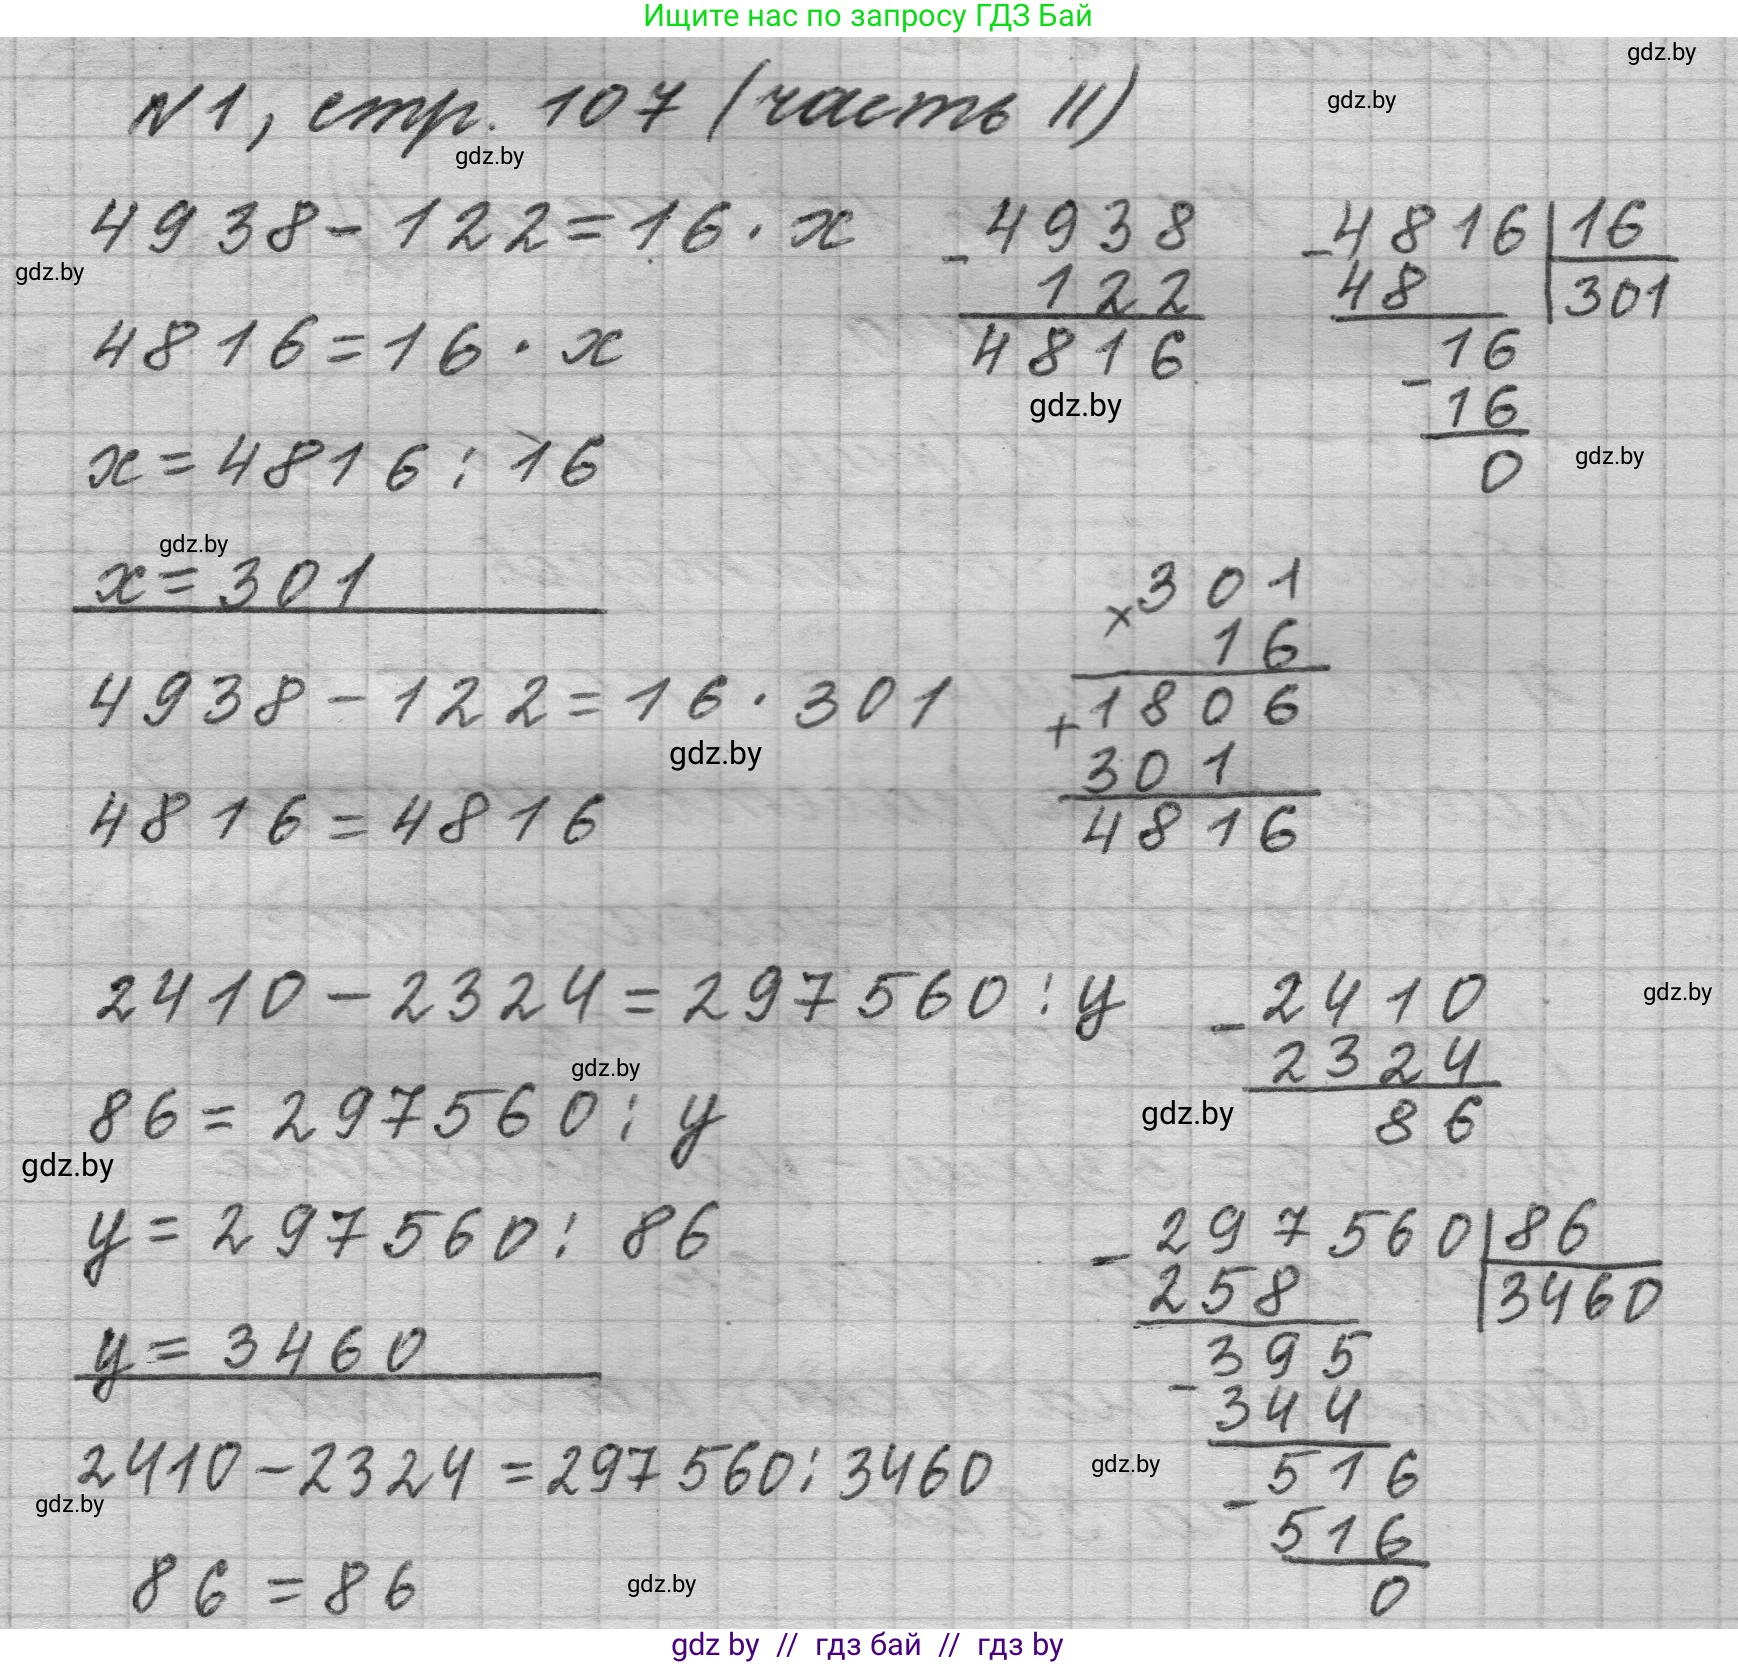 Ищите нас по запросу ГДЗ Бай
gdz.by
N1, стр. 107 (часть II)
gdz.by
gdz.by
4938-122=16·x
-4938
122
4816
-4816|16
48
301
-16
16
0
gdz.by
4816=16·x
gdz.by
x=4816:16
gdz.by
gdz.by
x=301
×301
16
+1806
301
4816
4938-122=16·301
gdz.by
4816=4816
2410-2324=297560:y
-2410
2324
86
gdz.by
gdz.by
86=297560:y
gdz.by
gdz.by
y=297560:86
-297560|86
258
3460
-395
344
-516
516
0
y=3460
2410-2324=297560:3460
gdz.by
gdz.by
86=86
gdz.by
gdz by // гдз бай // гдз by